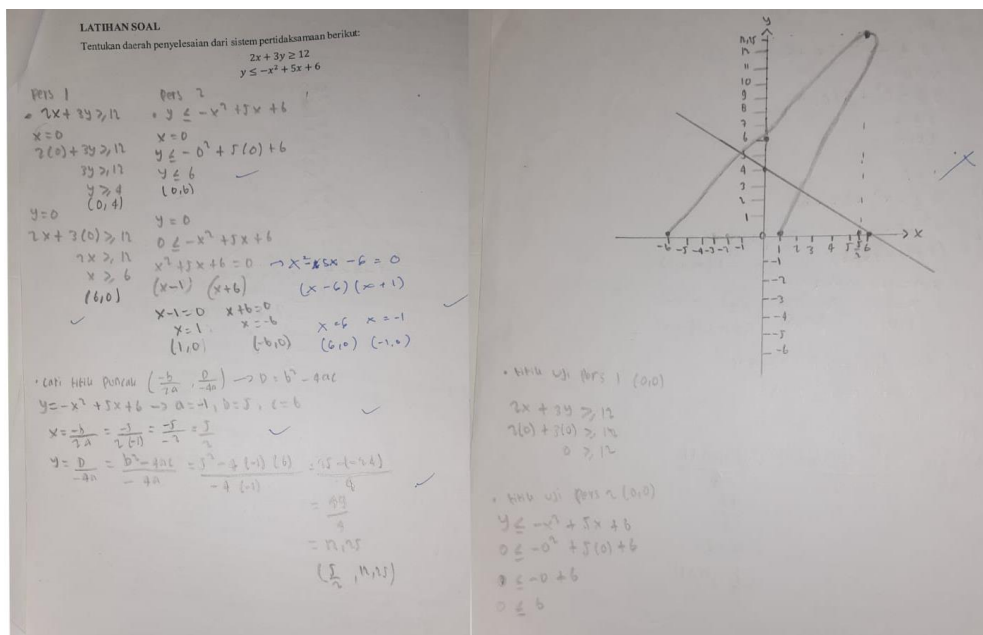 LATIHAN SOAL
Tentukan daerah penyelesaian dari sistem pertidaksamaan berikut:
2x + 3y ≥ 12
y ≤ −x² + 5x + 6
Pers 1
• 2x + 3y ≥ 12
x = 0
2(0) + 3y ≥ 12
3y ≥ 12
y ≥ 4
(0,4)
y = 0
2x + 3(0) ≥ 12
2x ≥ 12
x ≥ 6
(6,0)
Pers 2
• y ≤ -x² + 5x + 6
x = 0
y ≤ -0² + 5(0) + 6
y ≤ 6
(0,6)
y = 0
0 ≤ -x² + 5x + 6
x² + 5x + 6 = 0 → x² - 5x - 6 = 0
(x-1) (x+6) (x-6) (x+1)
x-1=0 x+6=0
x=1 x=-6 x=6 x=-1
(1,0) (-6,0) (6,0) (-1,0)
• Cari titik puncak (-b/2a, D/-4a) → D = b² - 4ac
y = -x² + 5x + 6 → a = -1, b = 5, c = 6
x = -b/2a = -5/2(-1) = -5/-2 = 5/2
y = D/-4a = b²-4ac/-4a = 5²-4(-1)(6)/-4(-1) = 25-(-24)/4
= 49/4
= 12,25
(5/2, 12,25)
y
12,25
12
11
10
9
8
7
6
5
4
3
2
1
-6 -5 -4 -3 -2 -1 0 1 2 3 4 5 5/2 6 x
-1
-2
-3
-4
-5
-6
• titik uji pers 1 (0,0)
2x + 3y ≥ 12
2(0) + 3(0) ≥ 12
0 ≥ 12
• titik uji pers 2 (0,0)
y ≤ -x² + 5x + 6
0 ≤ -0² + 5(0) + 6
0 ≤ -0 + 6
0 ≤ 6